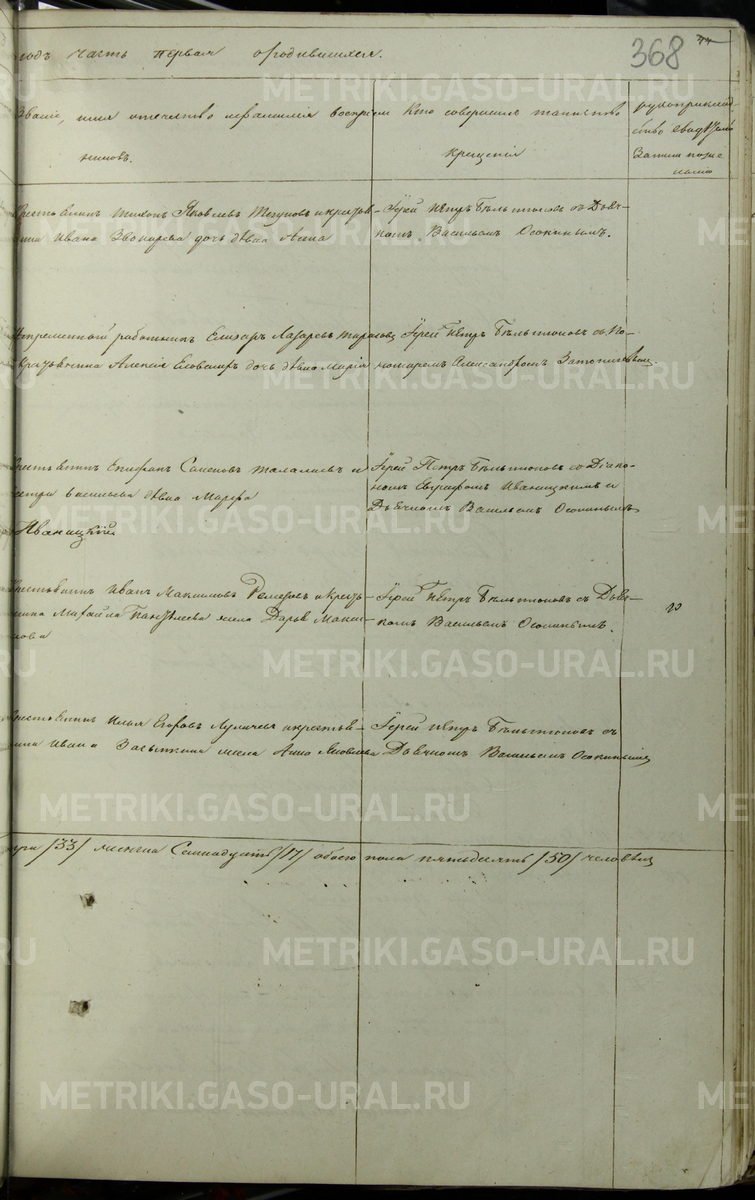 годъ часть первая о родившихся.
368
Званіе, имя отечество и фамилія воспріем
никовъ.
Кто совершалъ таинство
крещенія
рукоприклад
ство свидѣтел
Записи по же
ланію
крестьянинъ Тихонъ Яковлевъ и крестья
нина Ивана Звонирева дочь дѣвка Анна
Іерей Петръ Бѣльтюковъ съ Дьяч-
комъ Васильемъ Осокинымъ.
Непременной работникъ Елизаръ Лазаревъ Тарасовъ
Алексія дочь дѣвка Марія
Іерей Петръ Бѣльтюковъ съ По-
номаремъ Александромъ
крестьянинъ Епифанъ Семеновъ и
Васильева дѣвка Марфа
Іерей Петръ Бѣльтюковъ со Діако-
номъ Евграфомъ Иваницкимъ и
Дьячкомъ Васильемъ Осокинымъ
Иваницкій
крестьянинъ Иванъ Максимовъ Ремезовъ и кресть-
нина Михайла Пантелеева жена Дарья Макси-
мова
Іерей Петръ Бѣльтюковъ съ Дьяч-
комъ Васильемъ Осокинымъ.
крестьянинъ Илья Егоровъ и крестья-
нина Ивана Засыпкина жена Анна Яковлева
Іерей Петръ Бѣльтюковъ съ
Дьячкомъ Васильемъ Осокинымъ
/33/ женска Семнадцать /17/ обоего пола пятьдесятъ /50/ человѣкъ
METRIKI.GASO-URAL.RU